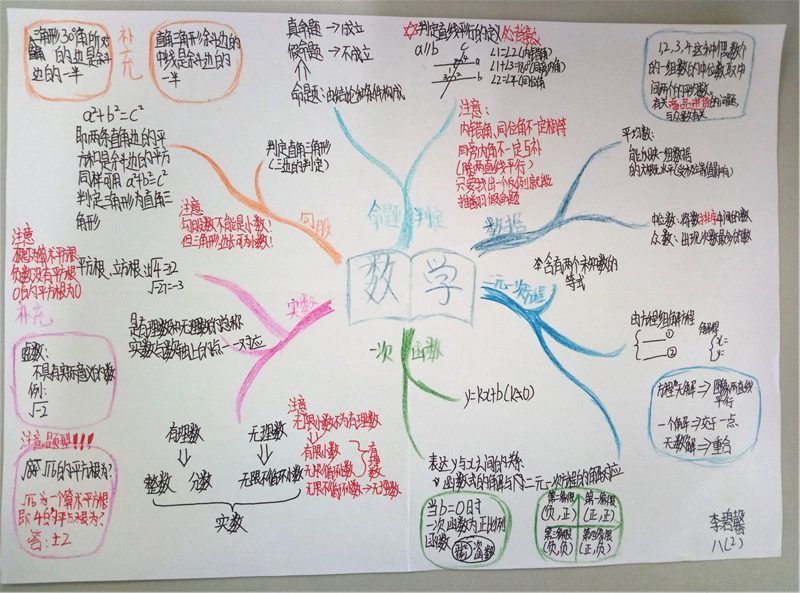 三角形30°角所对
的边是斜
边的一半
补充
直角三角形斜边的
中线是斜边的一
半
真命题→成立
假命题→不成立
命题：由结论和条件构成
☆判定直线平行的定义
a//b
∠1=∠2(内错角)
∠1+∠3=180°(同旁内角)
∠2=∠4(同位角)
注意：
内错角、同位角不一定相等
同旁内角不一定互补
(除两直线平行)
只要找出一个反例就能
指出假命题
1,2,3,4这种偶数个
的一组数的中位数取中
间两个的平均数,
有关的问题,
与众数有关
平均数:
能反映一组数据
的大概水平
中位数:将数排序中间的数
众数:出现次数最多的数
a²+b²=c²
即两条直角边的平
方和是斜边的平方
同样可用a²+b²=c²
判定三角形为直角三
角形
判定直角三角形
(三边的判定)
注意
勾股数不能是小数!
但三角形边长可为小数!
勾股
命题判定
数据
数学
实数
一次函数
二元一次方程
注意
负数没有平方根
0的平方根为0
补充
平方根、立方根:√4=2
是有理数和无理数的总称
实数与数轴上的点一一对应
虚数:
不具有实际意义的数
例:
√-2
注意题型!!!
√16的平方根为?
√16为一个算术平方根
即4的平方根为?
答:±2
有理数
无理数
整数 分数
无限不循环小数
实数
注意
无限小数不为有理数
有限小数
无限循环小数
有理数
无限不循环小数→无理数
含有两个未知数的
等式
由方程组解方程
①
②
解得
x=
y=
方程无解⇒图像两直线
平行
一个解⇒交于一点
无数解⇒重合
y=kx+b(k≠0)
表达y与x之间的关系
当b=0时
一次函数为正比例
函数
第二象限
(负,正)
第一象限
(正,正)
第三象限
(负,负)
第四象限
(正,负)
八(2)